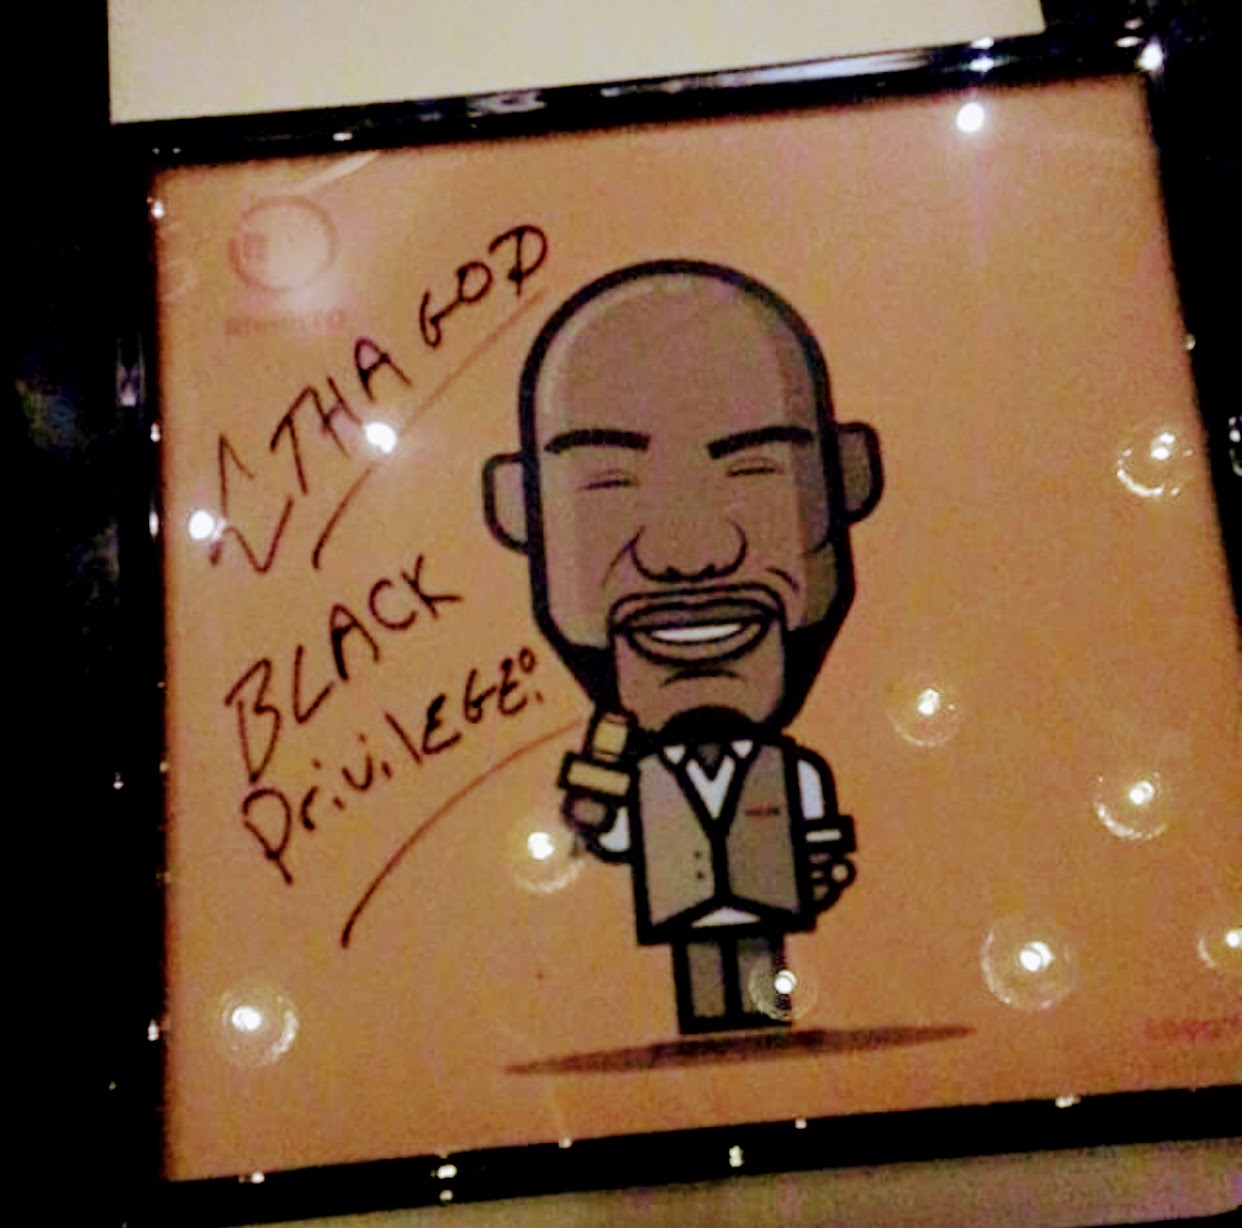 C THA GOD
BLACK
PrivilEGE!